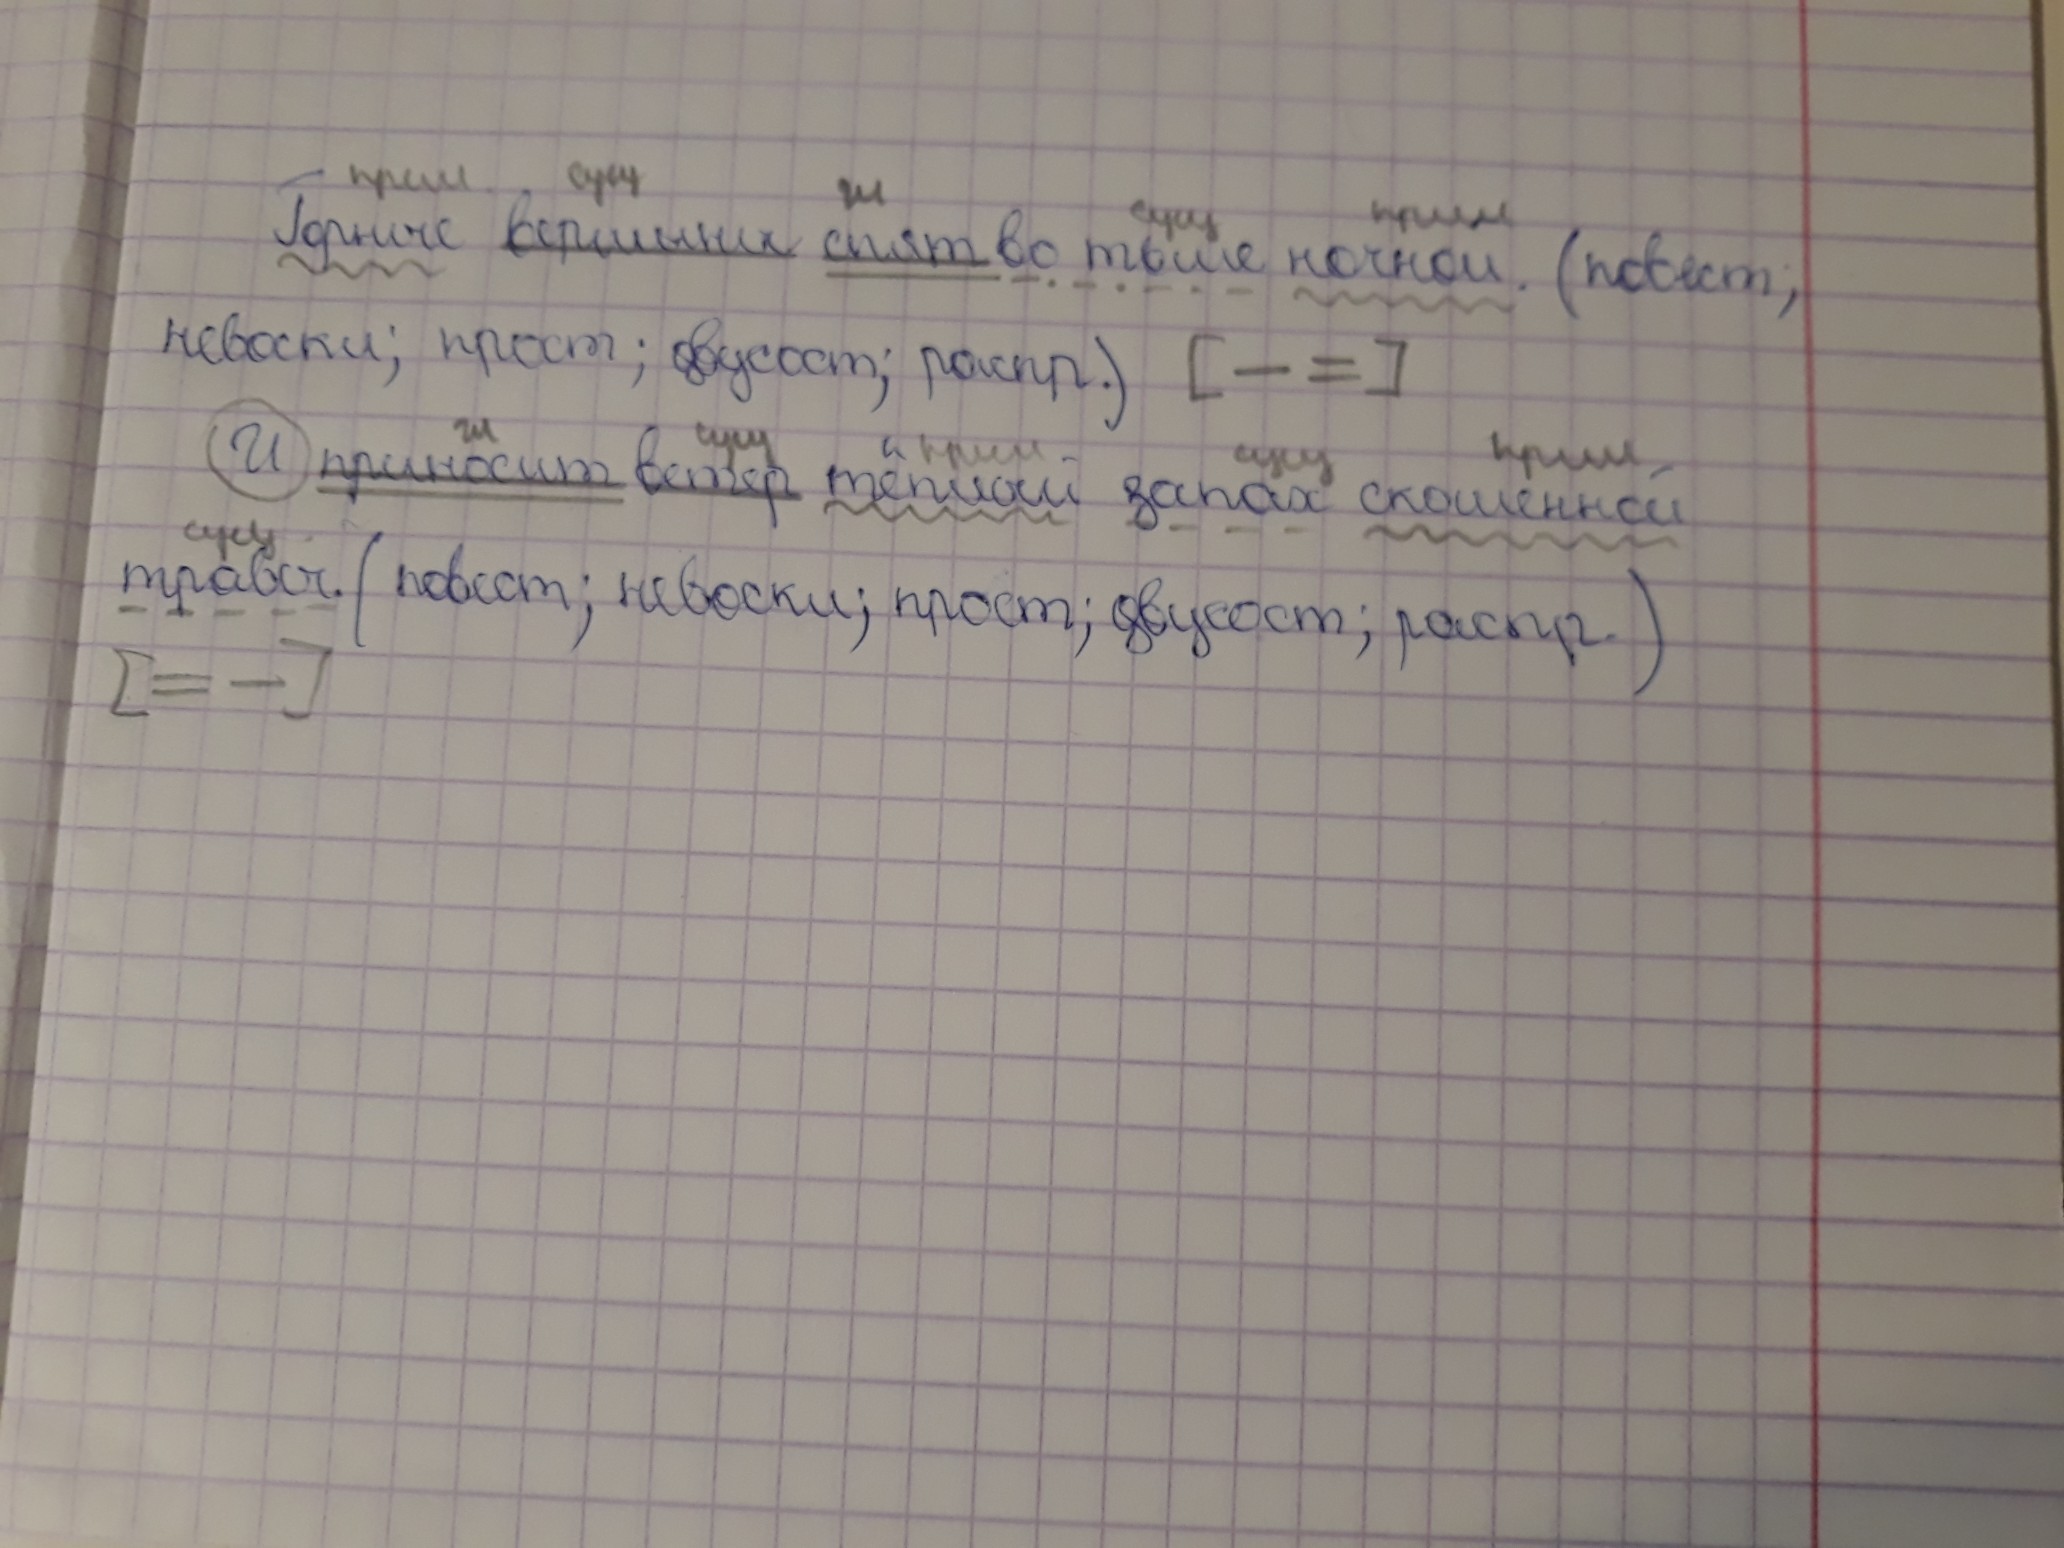 прил сущ гл сущ прил
Горные вершины спят во тьме ночной. (повест;
невоскл; прост; двусост; распр.) [— =]
гл сущ прил сущ прил
И приносит ветер тёплый запах скошенной
сущ
травы. (повест; невоскл; прост; двусост; распр.)
[= —]